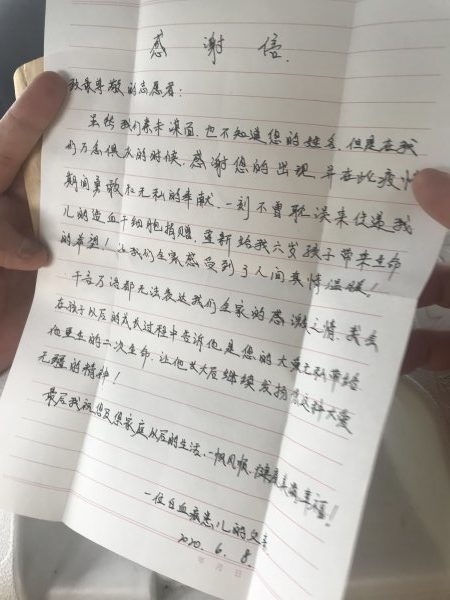 感谢信.
致最尊敬的志愿者:
虽然我们素未谋面,也不知道您的姓名,但是在我
们万念俱灰的时候,感谢您的出现,并在此疫情
期间勇敢和无私的奉献,一刻不曾耽误来促进我
儿的造血干细胞捐赠,重新给我六岁孩子带来生命
的希望!让我们全家感受到了人间真情温暖!
千言万语都无法表达我们全家的感激之情,我会
在孩子以后的成长过程中告诉他是您的大爱无私带给
他重生的二次生命,让他长大后继续发扬您这种大爱
无疆的精神!
最后我祝您及您家庭以后的生活,一帆风顺,幸福!
一位白血病患儿的父亲
2020.6.8.
年 月 日